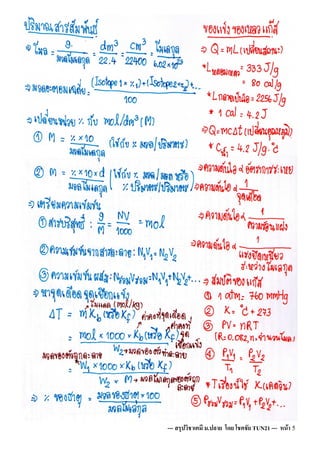 ปริมาณสารสัมพันธ์
⇒ โมล = g/มวลโมเลกุล = dm³/22.4 = cm³/22400 = โมเลกุล/6.02×10²³
⇒ มวลอะตอมเฉลี่ย = (Isotope1 × %1)+(Isotope2×%2)+.../100
⇒ เปลี่ยนหน่วย % กับ mol/dm³ (M)
① M = % × 10/มวลโมเลกุล (ใช้กับ % มวล/ปริมาตร)
② M = % × 10 × d/มวลโมเลกุล (ใช้กับ % มวล/มวล หรือ % ปริมาตร/ปริมาตร)
⇒ เตรียมความเข้มข้น
① สารบริสุทธิ์ : g/M = NV/1000 = mol
② ความเข้มข้นจากสารละลาย : N₁V₁ = N₂V₂
③ ความเข้มข้นผสม : NรวมVรวม = N₁V₁+N₂V₂+...
⇒ หาจุดเดือด จุดเยือกแข็ง
โมแลล (mol/kg)
ΔT = m Kb (หรือ Kf)
ค่าคงที่จุดเดือด
ค่าคงที่จุดเยือกแข็ง
= mol × 1000 × Kb (หรือ Kf)/W₂
มวลของตัวถูกละลาย
W₂ → มวลของตัวทำละลาย
= W₁ × 1000 × Kb (หรือ Kf)/W₂ × M
→ มวลโมเลกุลของตัวถูกละลาย
⇒ % ของธาตุ = มวลของธาตุ × 100/มวลโมเลกุล
ของแข็ง ของเหลว แก๊ส
⇒ Q = mL (เปลี่ยนสถานะ)
* Lหลอมเหลว = 333 J/g
= 80 cal/g
* Lกลายเป็นไอ = 2256 J/g
* 1 cal = 4.2 J
⇒ Q = mcΔt (เปลี่ยนอุณหภูมิ)
* Cน้ำ = 4.2 J/g·°C
⇒ ความดันไอ α อัตราการระเหย
⇒ ความดันไอ α 1/จุดเดือด
⇒ ความดันไอ α 1/ความร้อนแฝง
⇒ ความดันไอ α 1/แรงยึดเหนี่ยวระหว่างโมเลกุล
⇒ สมบัติของแก๊ส
① 1 atm = 760 mmHg
② K = °C + 273
③ PV = nRT
(R = 0.082, n = จำนวนโมล)
④ P₁V₁/T₁ = P₂V₂/T₂
* T เรื่องนี้ใช้ K (เคลวิน)
⑤ PรวมVรวม = P₁V₁+P₂V₂+...
--- สรุปวิชาเคมี ม.ปลาย โดย โชคชัย TUN21 --- หน้า 5